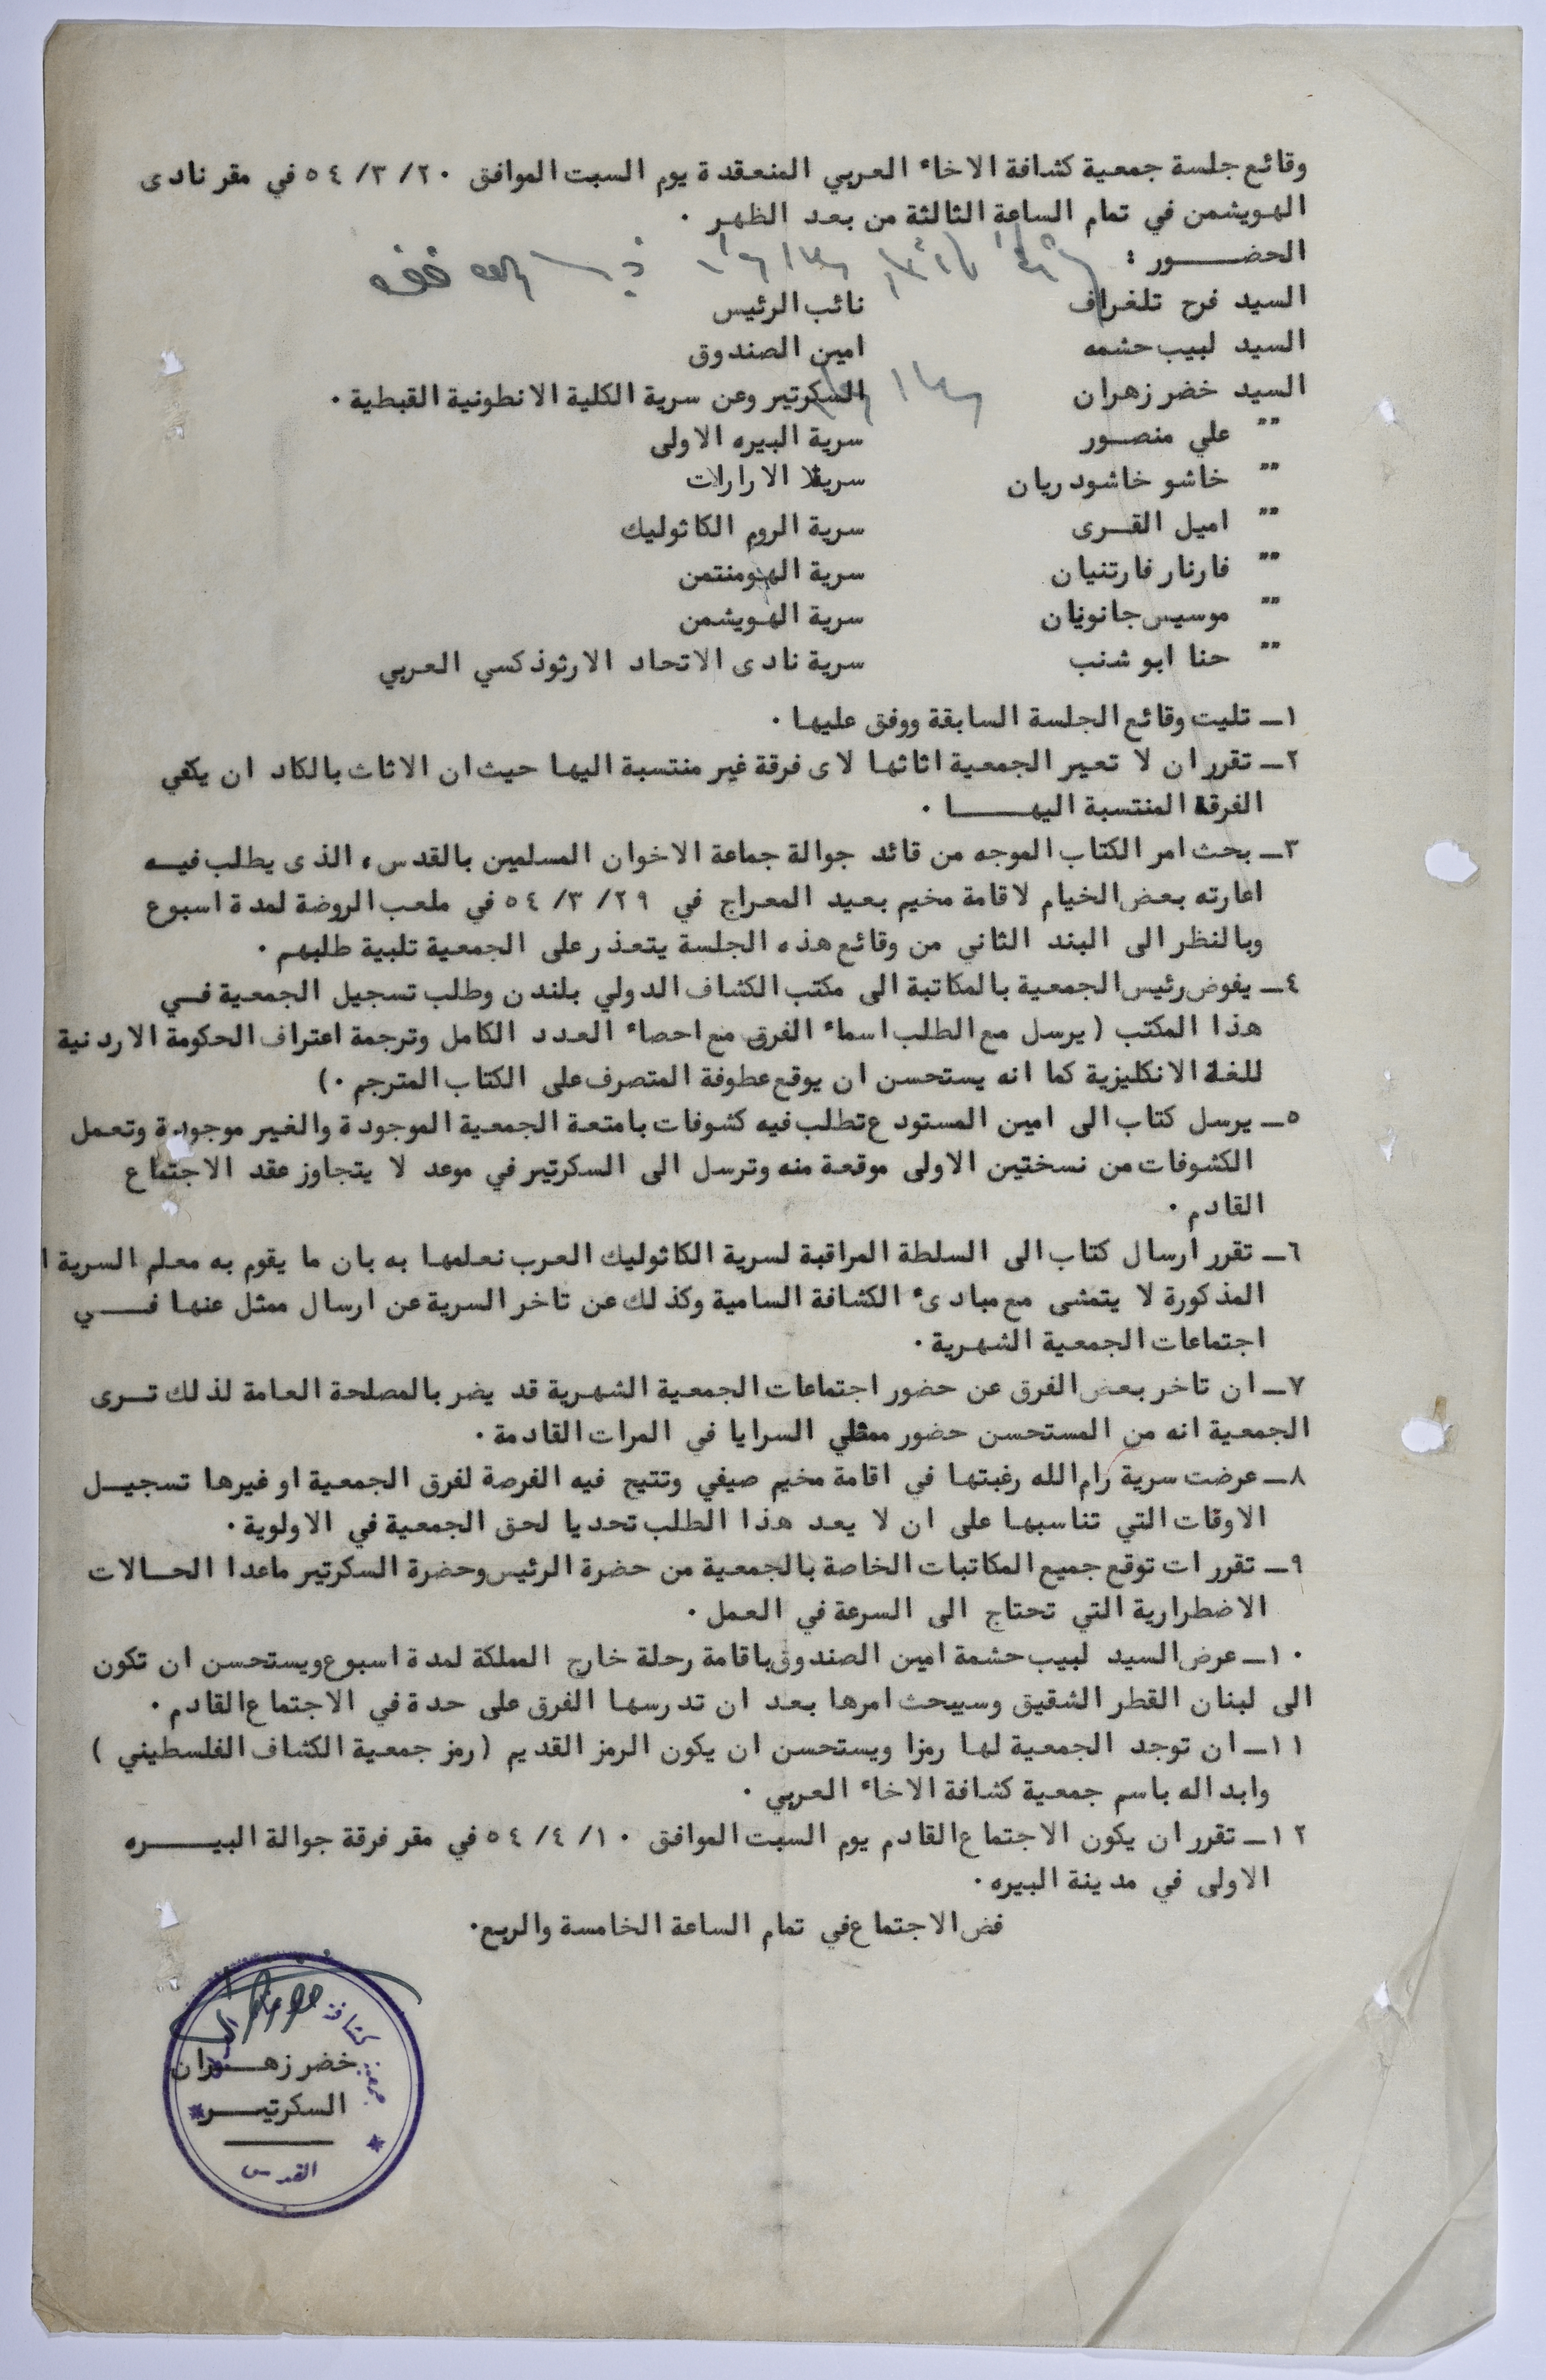 وقائع جلسة جمعية كشافة الاخاء العربي المنعقدة يوم السبت الموافق ٢٠/ ٣/ ٥٤ في مقر نادى
الهويشمن في تمام الساعة الثالثة من بعد الظهر ٠
الحضـــور :
السيد فرح تلغراف نائب الرئيس
السيد لبيب حشمه امين الصندوق
السيد خضر زهران السكرتير وعن سرية الكلية الانطونية القبطية ٠
"" علي منصـور سرية البيره الاولى
"" خاشو خاشودريان سرية الارارات
"" اميل القـرى سرية الروم الكاثوليك
"" فارنار فارتنيان سرية الهومنتمن
"" موسيس جانويان سرية الهويشمن
"" حنا ابو شنب سرية نادى الاتحاد الارثوذكسي العربي
١ـ تليت وقائع الجلسة السابقة ووفق عليها ٠
٢ـ تقرر ان لا تعير الجمعية اثاثها لاى فرقة غير منتسبة اليها حيث ان الاثاث بالكاد ان يكفي
الفرقة المنتسبة اليهـــــا ٠
٣ـ بحث امر الكتاب الموجه من قائد جوالة جماعة الاخوان المسلمين بالقدس، الذى يطلب فيـه
اعارته بعض الخيام لاقامة مخيم بعيد المعراج في ٢٩/ ٣/ ٥٤ في ملعب الروضة لمدة اسبوع
وبالنظر الى البند الثاني من وقائع هذه الجلسة يتعذر على الجمعية تلبية طلبهم ٠
٤ـ يفوض رئيس الجمعية بالمكاتبة الى مكتب الكشاف الدولي بلندن وطلب تسجيل الجمعية فـي
هذا المكتب (يرسل مع الطلب اسماء الفرق مع احصاء العدد الكامل وترجمة اعتراف الحكومة الاردنية
للغة الانكليزية كما انه يستحسن ان يوقع عطوفة المتصرف على الكتاب المترجم ٠)
٥ـ يرسل كتاب الى امين المستودع تطلب فيه كشوفات بامتعة الجمعية الموجودة والغير موجودة وتعمل
الكشوفات من نسختين الاولى موقعة منه وترسل الى السكرتير في موعد لا يتجاوز عقد الاجتماع
القادم ٠
٦ـ تقرر ارسال كتاب الى السلطة المراقبة لسرية الكاثوليك العرب نعلمها به بان ما يقوم به معلم السرية ا
المذكورة لا يتمشى مع مبادىء الكشافة السامية وكذلك عن تاخر السرية عن ارسال ممثل عنها فـــي
اجتماعات الجمعية الشهرية ٠
٧ـ ان تاخر بعض الفرق عن حضور اجتماعات الجمعية الشهرية قد يضر بالمصلحة العامة لذلك تـرى
الجمعية انه من المستحسن حضور ممثلي السرايا في المرات القادمة ٠
٨ـ عرضت سرية رام الله رغبتها في اقامة مخيم صيفي وتتيح فيه الفرصة لفرق الجمعية او غيرها تسجيـل
الاوقات التي تناسبها على ان لا يعد هذا الطلب تحديا لحق الجمعية في الاولوية ٠
٩ـ تقرر ات توقع جميع المكاتبات الخاصة بالجمعية من حضرة الرئيس وحضرة السكرتير ماعدا الحـالات
الاضطرارية التي تحتاج الى السرعة في العمل ٠
١٠ـ عرض السيد لبيب حشمة امين الصندوق باقامة رحلة خارج المملكة لمدة اسبوع ويستحسن ان تكون
الى لبنان القطر الشقيق وسيبحث امرها بعد ان تدرسها الفرق على حدة في الاجتماع القادم ٠
١١ـ ان توجد الجمعية لها رمزا ويستحسن ان يكون الرمز القديم (رمز جمعية الكشاف الفلسطيني )
وابداله باسم جمعية كشافة الاخاء العربي ٠
١٢ـ تقرر ان يكون الاجتماع القادم يوم السبت الموافق ١٠/ ٤/ ٥٤ في مقر فرقة جوالة البيـــره
الاولى في مدينة البيره ٠
فض الاجتماع في تمام الساعة الخامسة والربع٠
جمعية كشافة
خضر زهـــران
السكرتيـــر
القدس